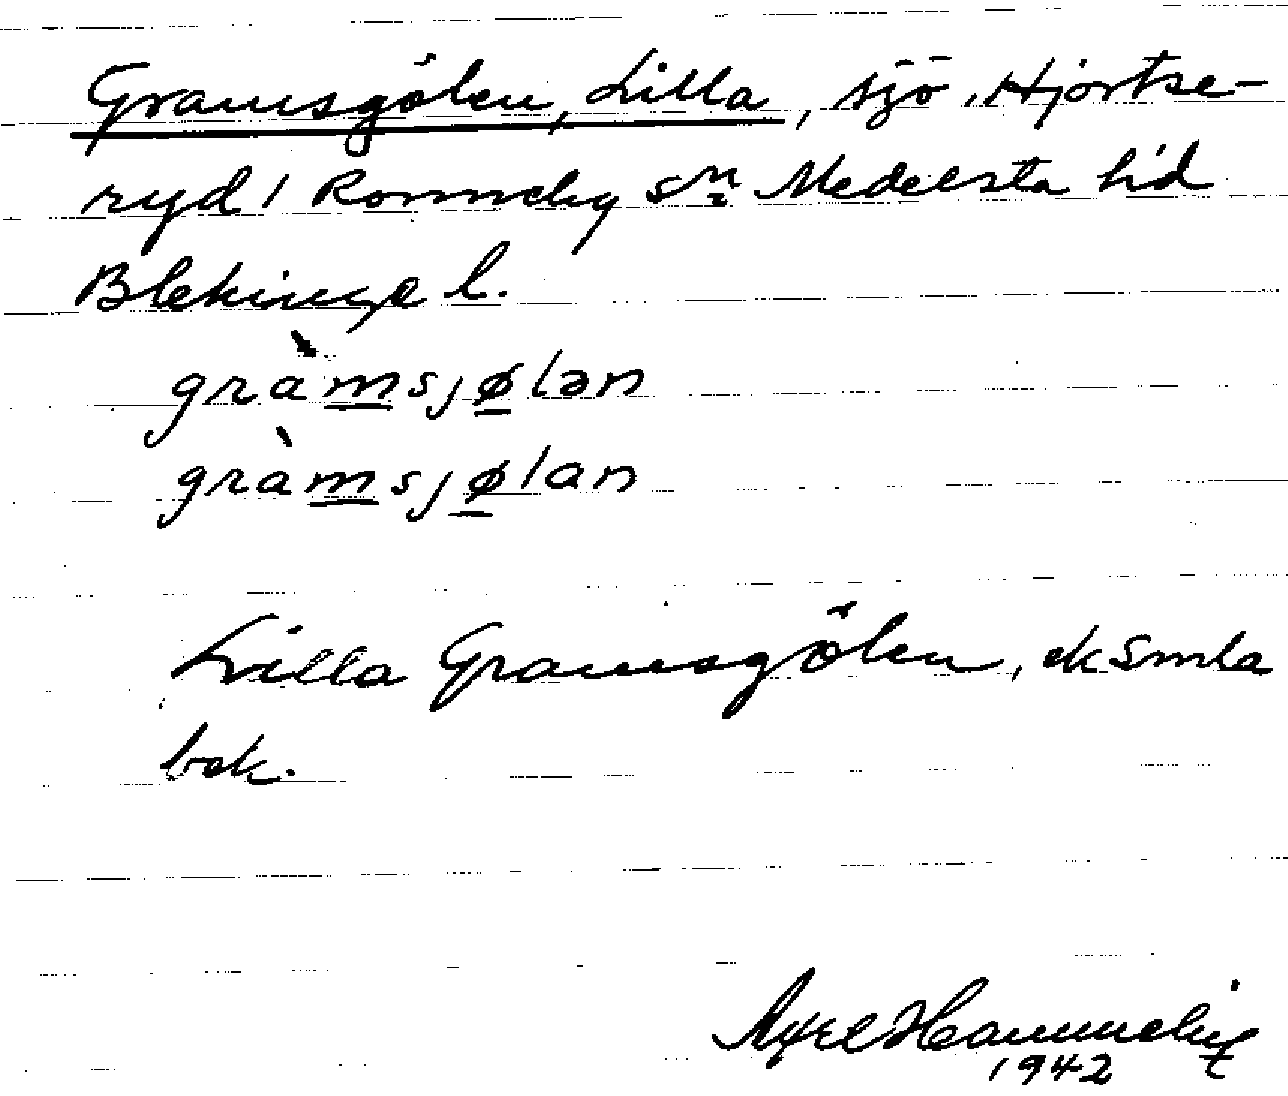 Gramsgölen, Lilla, sjö, Hjortse-
ryd, Ronneby sn Medelsta hd
Blekinge l.
gràmsjølən
gràmsjølan
Lilla Gramsgölen, ek
bok.
Axel
1942